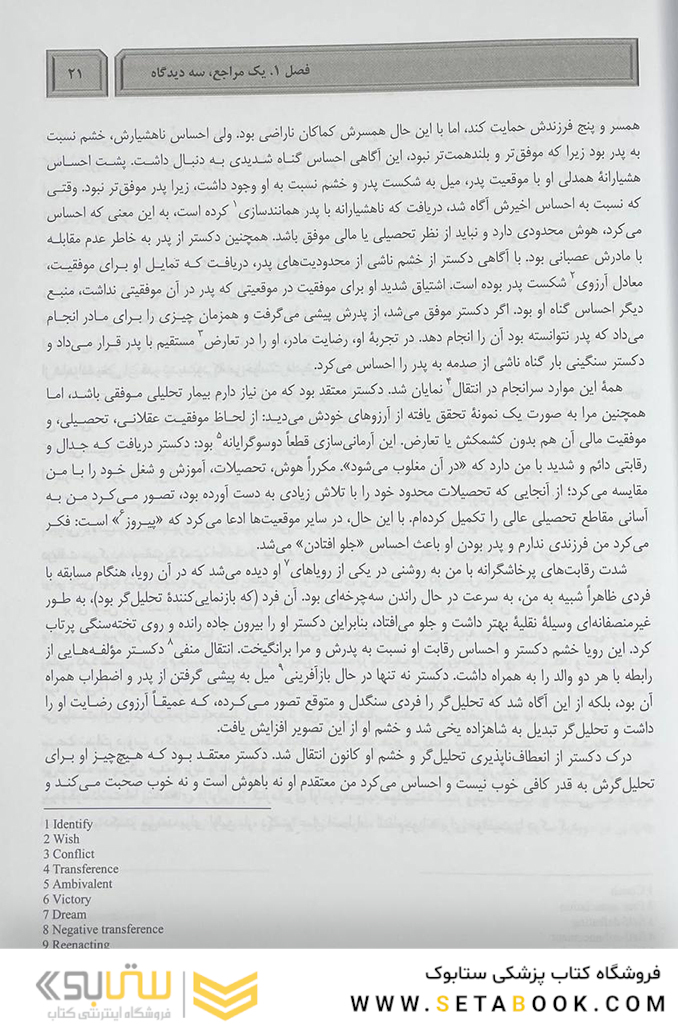 فصل ۱. یک مراجع، سه دیدگاه
۲۱
همسر و پنج فرزندش حمایت کند، اما با این حال همسرش کماکان ناراضی بود. ولی احساس ناهشیارش، خشم نسبت
به پدر بود زیرا که موفق‌تر و بلندهمت‌تر نبود، این آگاهی احساس گناه شدیدی به دنبال داشت. پشت احساس
هشیارانهٔ همدلی او با موقعیت پدر، میل به شکست پدر و خشم نسبت به او وجود داشت، زیرا پدر موفق‌تر نبود. وقتی
که نسبت به احساس اخیرش آگاه شد، دریافت که ناهشیارانه با پدر همانندسازی۱ کرده است، به این معنی که احساس
می‌کرد، هوش محدودی دارد و نباید از نظر تحصیلی یا مالی موفق باشد. همچنین دکستر از پدر به خاطر عدم مقابله
با مادرش عصبانی بود. با آگاهی دکستر از خشم ناشی از محدودیت‌های پدر، دریافت که تمایل او برای موفقیت،
معادل آرزوی۲ شکست پدر بوده است. اشتیاق شدید او برای موفقیت در موقعیتی که پدر در آن موفقیتی نداشت، منبع
دیگر احساس گناه او بود. اگر دکستر موفق می‌شد، از پدرش پیشی می‌گرفت و همزمان چیزی را برای مادر انجام
می‌داد که پدر نتوانسته بود آن را انجام دهد. در تجربهٔ او، رضایت مادر، او را در تعارض۳ مستقیم با پدر قرار می‌داد و
دکستر سنگینی بار گناه ناشی از صدمه به پدر را احساس می‌کرد.
همهٔ این موارد سرانجام در انتقال۴ نمایان شد. دکستر معتقد بود که من نیاز دارم بیمار تحلیلی موفقی باشد، اما
همچنین مرا به صورت یک نمونهٔ تحقق یافته از آرزوهای خودش می‌دید: از لحاظ موفقیت عقلانی، تحصیلی، و
موفقیت مالی آن هم بدون کشمکش یا تعارض. این آرمانی‌سازی قطعاً دوسوگرایانه۵ بود: دکستر دریافت که جدال و
رقابتی دائم و شدید با من دارد که «در آن مغلوب می‌شود». مکرراً هوش، تحصیلات، آموزش و شغل خود را با من
مقایسه می‌کرد؛ از آنجایی که تحصیلات محدود خود را با تلاش زیادی به دست آورده بود، تصور می‌کرد من به
آسانی مقاطع تحصیلی عالی را تکمیل کرده‌ام. با این حال، در سایر موقعیت‌ها ادعا می‌کرد که «پیروز۶» است: فکر
می‌کرد من فرزندی ندارم و پدر بودن او باعث احساس «جلو افتادن» می‌شد.
شدت رقابت‌های پرخاشگرانه با من به روشنی در یکی از رویاهای۷ او دیده می‌شد که در آن رویا، هنگام مسابقه با
فردی ظاهراً شبیه به من، به سرعت در حال راندن سه‌چرخه‌ای بود. آن فرد (که بازنمایی‌کنندهٔ تحلیل‌گر بود)، به طور
غیرمنصفانه‌ای وسیلهٔ نقلیهٔ بهتر داشت و جلو می‌افتاد، بنابراین دکستر او را بیرون جاده رانده و روی تخته‌سنگی پرتاب
کرد. این رویا خشم دکستر و احساس رقابت او نسبت به پدرش و مرا برانگیخت. انتقال منفی۸ دکستر مؤلفه‌هایی از
رابطه با هر دو والد را به همراه داشت. دکستر نه تنها در حال بازآفرینی۹ میل به پیشی گرفتن از پدر و اضطراب همراه
آن بود، بلکه از این آگاه شد که تحلیل‌گر را فردی سنگدل و متوقع تصور می‌کرده، که عمیقاً آرزوی رضایت او را
داشت و تحلیل‌گر تبدیل به شاهزاده یخی شد و خشم او از این تصویر افزایش یافت.
درک دکستر از انعطاف‌ناپذیری تحلیل‌گر و خشم او کانون انتقال شد. دکستر معتقد بود که هیچ‌چیز او برای
تحلیل‌گرش به قدر کافی خوب نیست و احساس می‌کرد من معتقدم او نه باهوش است و نه خوب صحبت می‌کند و
1 Identify
2 Wish
3 Conflict
4 Transference
5 Ambivalent
6 Victory
7 Dream
8 Negative transference
9 Reenacting
ستابوک
فروشگاه اینترنتی کتاب
فروشگاه کتاب پزشکی ستابوک
WWW.SETABOOK.COM